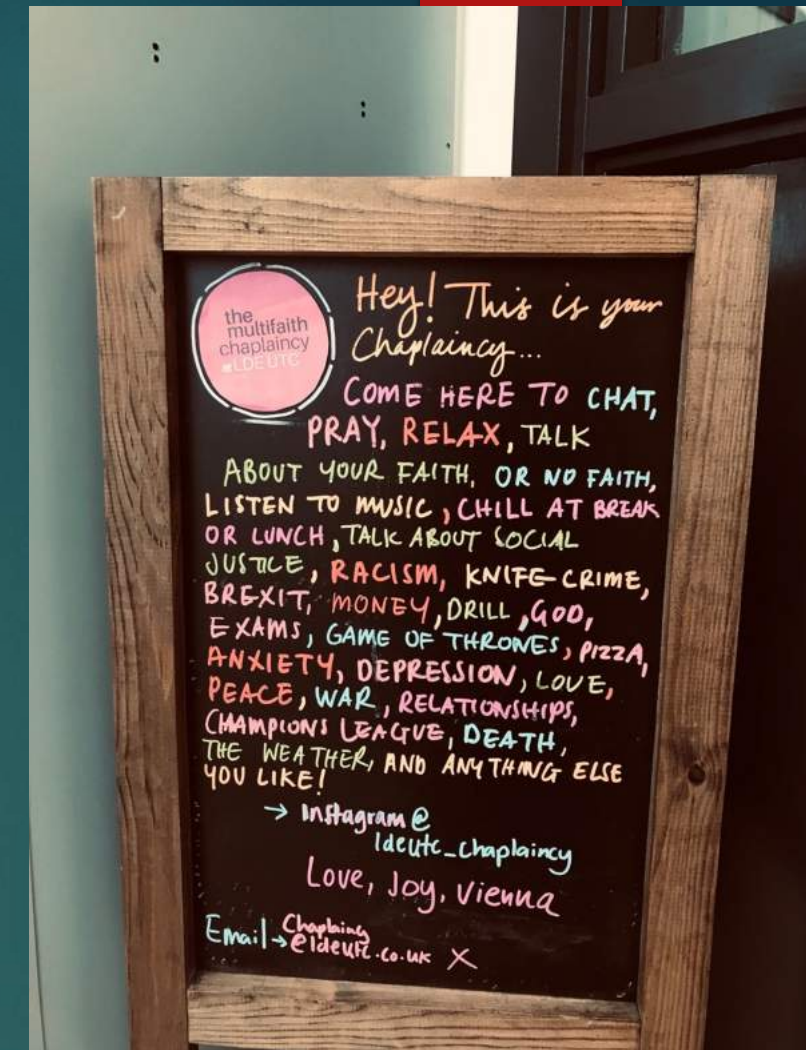 the
multifaith
chaplaincy
at LDE UTC
Hey! This is your
Chaplaincy...
COME HERE TO CHAT,
PRAY, RELAX, TALK
ABOUT YOUR FAITH, OR NO FAITH,
LISTEN TO MUSIC, CHILL AT BREAK
OR LUNCH, TALK ABOUT SOCIAL
JUSTICE, RACISM, KNIFE CRIME,
BREXIT, MONEY, DRILL, GOD,
EXAMS, GAME OF THRONES, PIZZA,
ANXIETY, DEPRESSION, LOVE,
PEACE, WAR, RELATIONSHIPS,
CHAMPIONS LEAGUE, DEATH,
THE WEATHER, AND ANYTHING ELSE
YOU LIKE!
→ Instagram @
ldeutc_chaplaincy
Love, Joy, Vienna
Email → Chaplaincy
@ldeutc.co.uk X